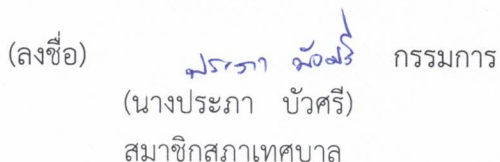 (ลงชื่อ) ประภา บัวศรี กรรมการ
(นางประภา บัวศรี)
สมาชิกสภาเทศบาล